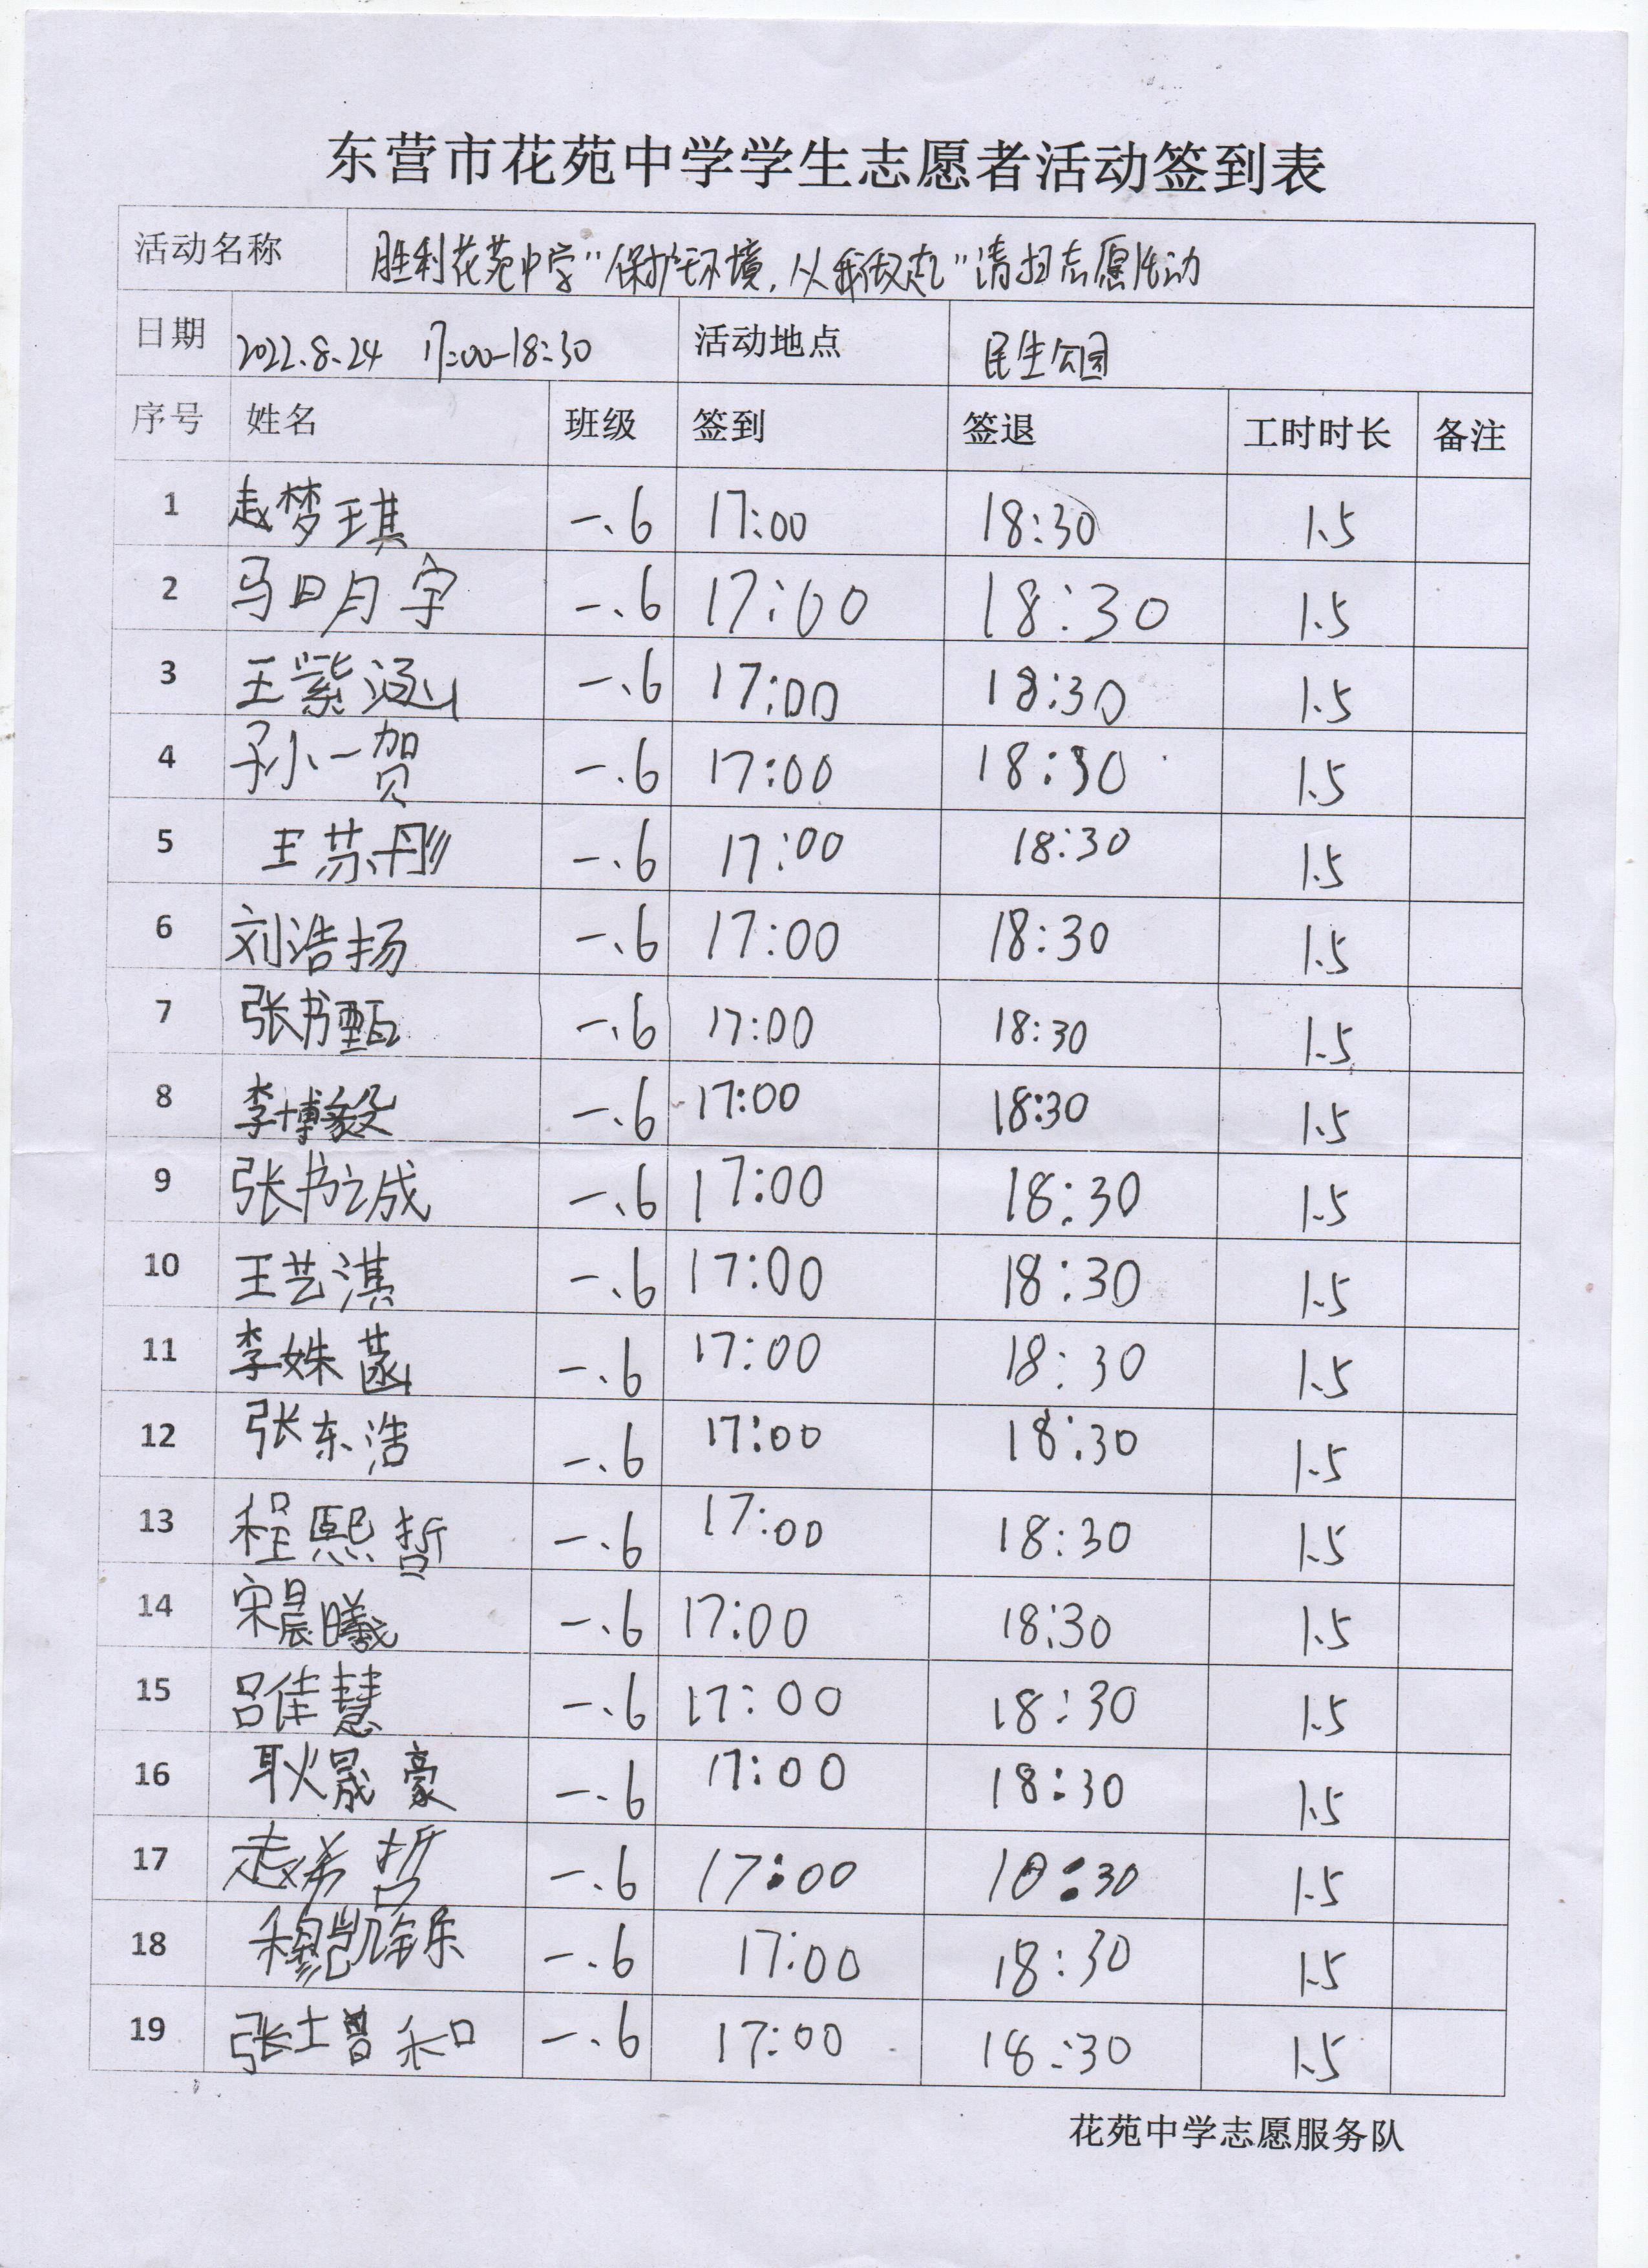 东营市花苑中学学生志愿者活动签到表
活动名称 胜利花苑中学"保护环境,从我做起"清扫志愿活动
日期 2022.8.24 17:00-18:30 活动地点 民生公园
序号 姓名 班级 签到 签退 工时时长 备注
1 赵梦琪 一.6 17:00 18:30 1.5
2 马明宇 一.6 17:00 18:30 1.5
3 王紫涵 一.6 17:00 18:30 1.5
4 孙一贺 一.6 17:00 18:30 1.5
5 王苏彤 一.6 17:00 18:30 1.5
6 刘浩扬 一.6 17:00 18:30 1.5
7 张书甄 一.6 17:00 18:30 1.5
8 李博毅 一.6 17:00 18:30 1.5
9 张书诚 一.6 17:00 18:30 1.5
10 王艺淇 一.6 17:00 18:30 1.5
11 李姝菡 一.6 17:00 18:30 1.5
12 张东浩 一.6 17:00 18:30 1.5
13 程熙哲 一.6 17:00 18:30 1.5
14 宋晨曦 一.6 17:00 18:30 1.5
15 吕佳慧 一.6 17:00 18:30 1.5
16 耿晟豪 一.6 17:00 18:30 1.5
17 赵希哲 一.6 17:00 18:30 1.5
18 穆凯铄 一.6 17:00 18:30 1.5
19 张增和 一.6 17:00 18:30 1.5
花苑中学志愿服务队